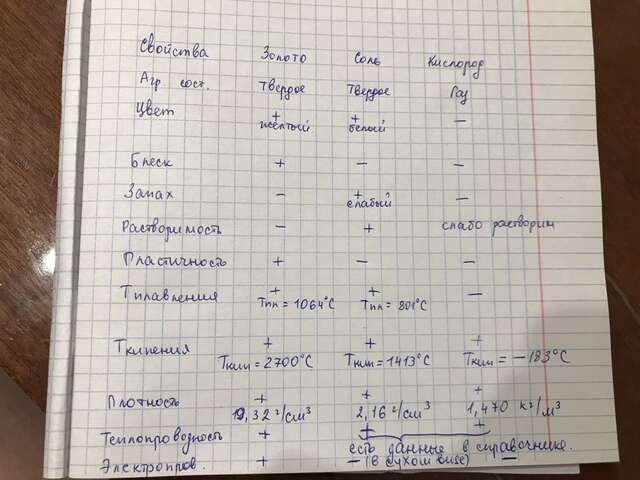 Свойства Золото Соль Кислород
Агр. сост. твердое твердое Газ
Цвет + желтый + белый −
Блеск + − −
Запах − + слабый −
Растворимость − + слабо растворим
Пластичность + − −
Т плавления + Тпл = 1064°С + Тпл = 801°С −
Т кипения + Ткип = 2700°С + Ткип = 1413°С + Ткип = −183°С
Плотность + 19,32 г/см³ + 2,16 г/см³ + 1,470 кг/м³
Теплопроводность + + +
есть данные в справочнике.
Электропров. + − (в сухом виде) −